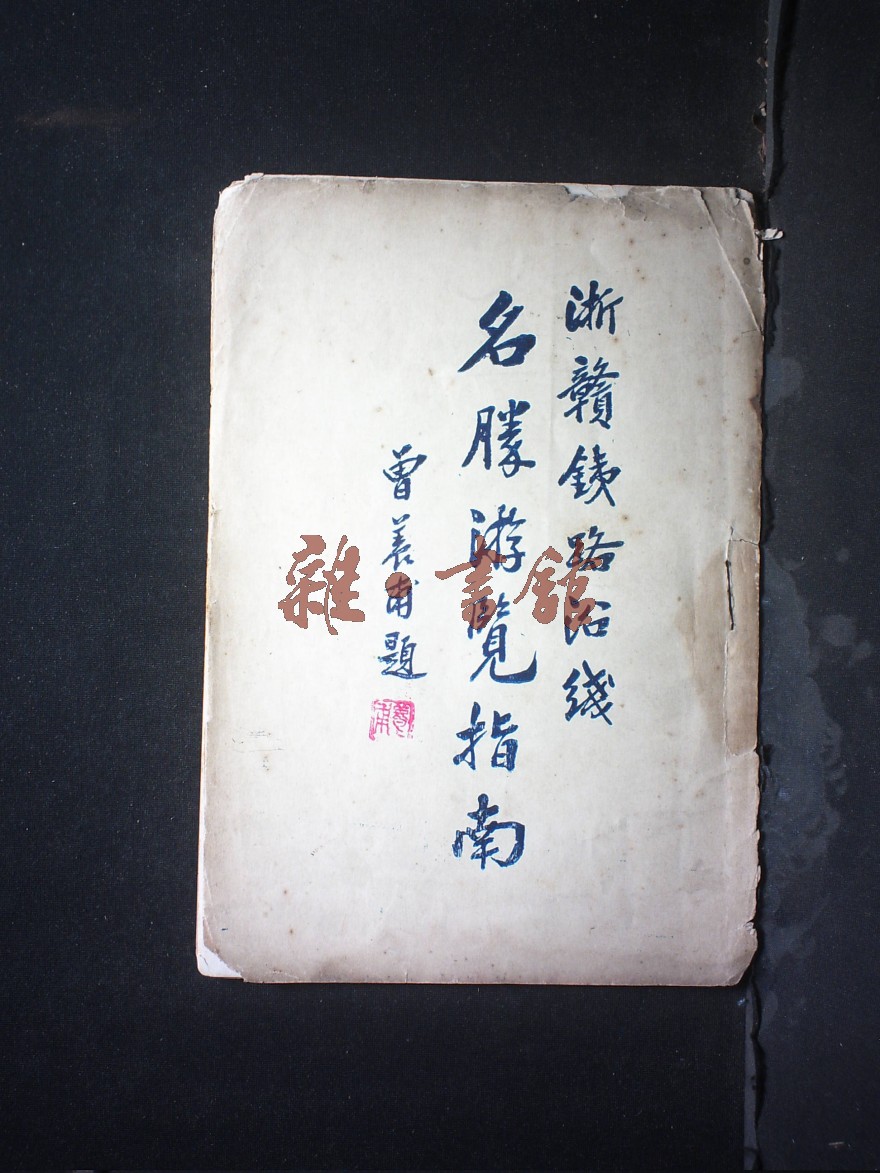 浙贛鉄路沿綫
名勝游覽指南
曾養甫題
雜·書館